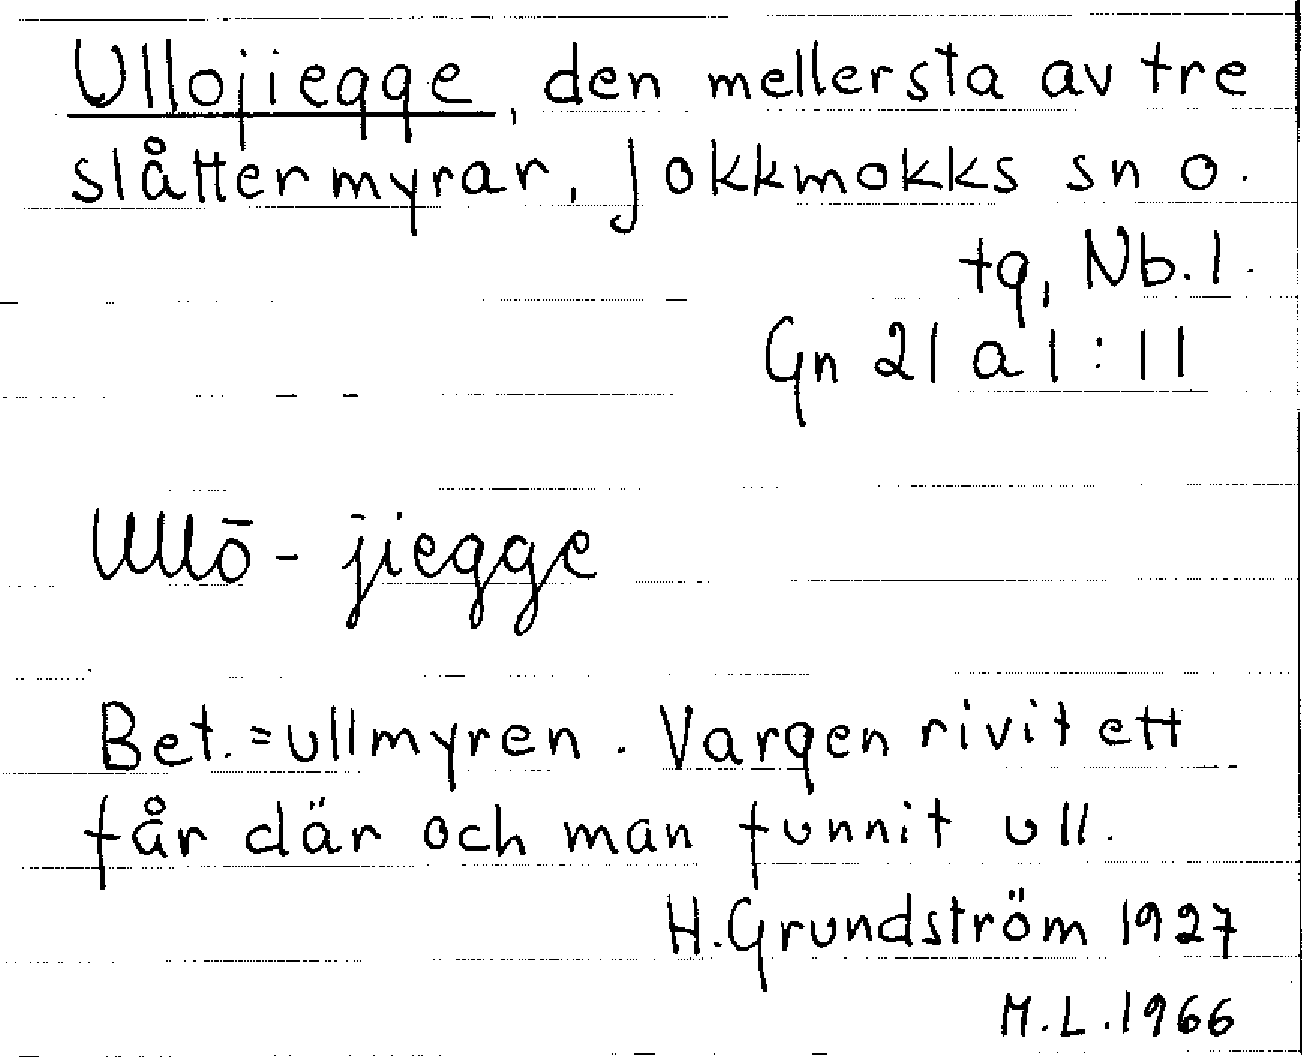 Ullojiegge, den mellersta av tre
slåttermyrar, Jokkmokks sn o.
tg, Nb. l.
Gn 21 a 1 : 11
Ullō - jiegge
Bet. = ullmyren. Vargen rivit ett
får där och man funnit ull.
H. Grundström 1927
M.L. 1966